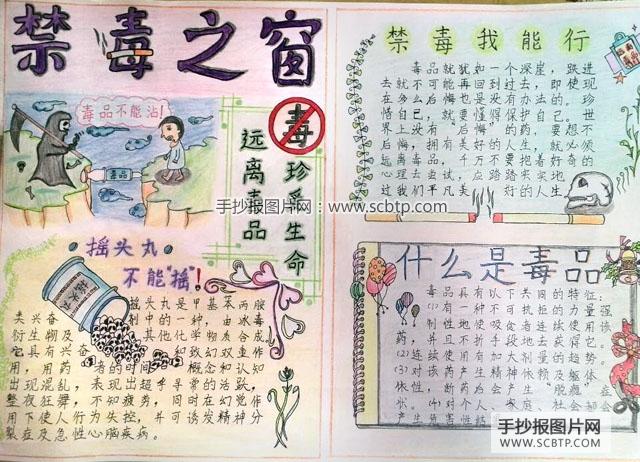 禁毒之窗
毒品不能沾!
毒品
毒
珍爱生命
远离毒品
摇头丸
不能"摇"!
摇头丸
摇头丸是甲基苯丙胺
类兴奋剂中的一种，由冰毒
衍生物及其他化学物质合成，
它具有兴奋和致幻双重作
用，用药者的时间概念和认知
出现混乱，表现出超乎寻常的活跃，
整夜狂舞，不知疲劳，同时在幻觉作
用下使人行为失控，并可诱发精神分
裂症及急性心脑疾病。
禁毒我能行
毒品就犹如一个深崖，跃进
去就不可能再回到过去，即使现
在多么后悔也是没有办法的。珍
惜自已，就要懂得保护自己。世
界上没有"后悔"的药，要想不
后悔，拥有美好的人生，就必须
远离毒品，千万不要抱着好奇的
心理去尝试，应踏踏实实地
过我们平凡美好的人生
什么是毒品
毒品具有以下共同的特征：
(1)有一种不可抗拒的力量强
制性地使吸食者连续使用该
药，并且不折手段地去获得它。
(2)连续使用有加大剂量的趋势。
(3)对该药产生精神依赖及躯体
依性，断药后会产生"脱瘾"症
状。(4)对个人、家庭、社会都会
产生危害性
手抄报图片网：www.scbtp.com
手抄报图片网
WWW.SCBTP.COM